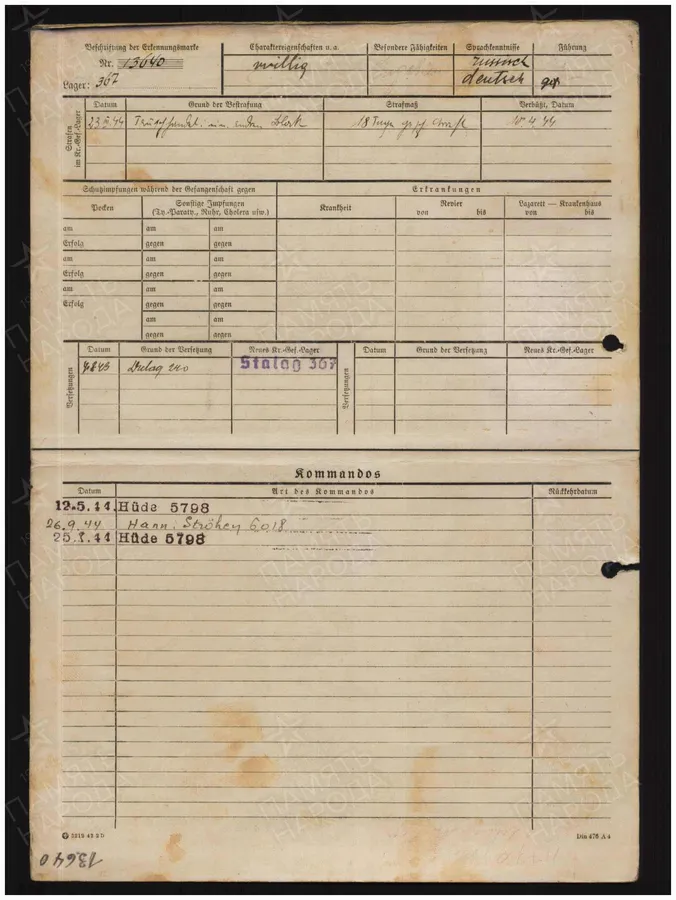 Beschriftung der Erkennungsmarke
Nr. 13640
Lager: 367
Charaktereigenschaften u. a.
willig
Besondere Fähigkeiten
Sprachkenntnisse
russisch
deutsch
Führung
gut
Strafen im Kr.-Gef.-Lager
Datum
Grund der Bestrafung
Strafmaß
Verbüßt, Datum
44
18 Tage
Schutzimpfungen während der Gefangenschaft gegen
Erkrankungen
Pocken
Sonstige Impfungen
(Ty.-Paraty., Ruhr, Cholera usw.)
Krankheit
Revier
von bis
Lazarett — Krankenhaus
von bis
am am am
Erfolg gegen gegen
am am am
Erfolg gegen gegen
am am am
Erfolg gegen gegen
am am
gegen gegen
Versetzungen
Datum
Grund der Versetzung
Neues Kr.-Gef.-Lager
Dulag
Stalag 367
Versetzungen
Datum
Grund der Versetzung
Neues Kr.-Gef.-Lager
Kommandos
Datum Art des Kommandos Rückkehrdatum
12.5.44. Hüde 5798
26.9.44 Hann. Ströhen 6018
Hüde 5798
Din 476 A 4
13640
ПАМЯТЬ
НАРОДА